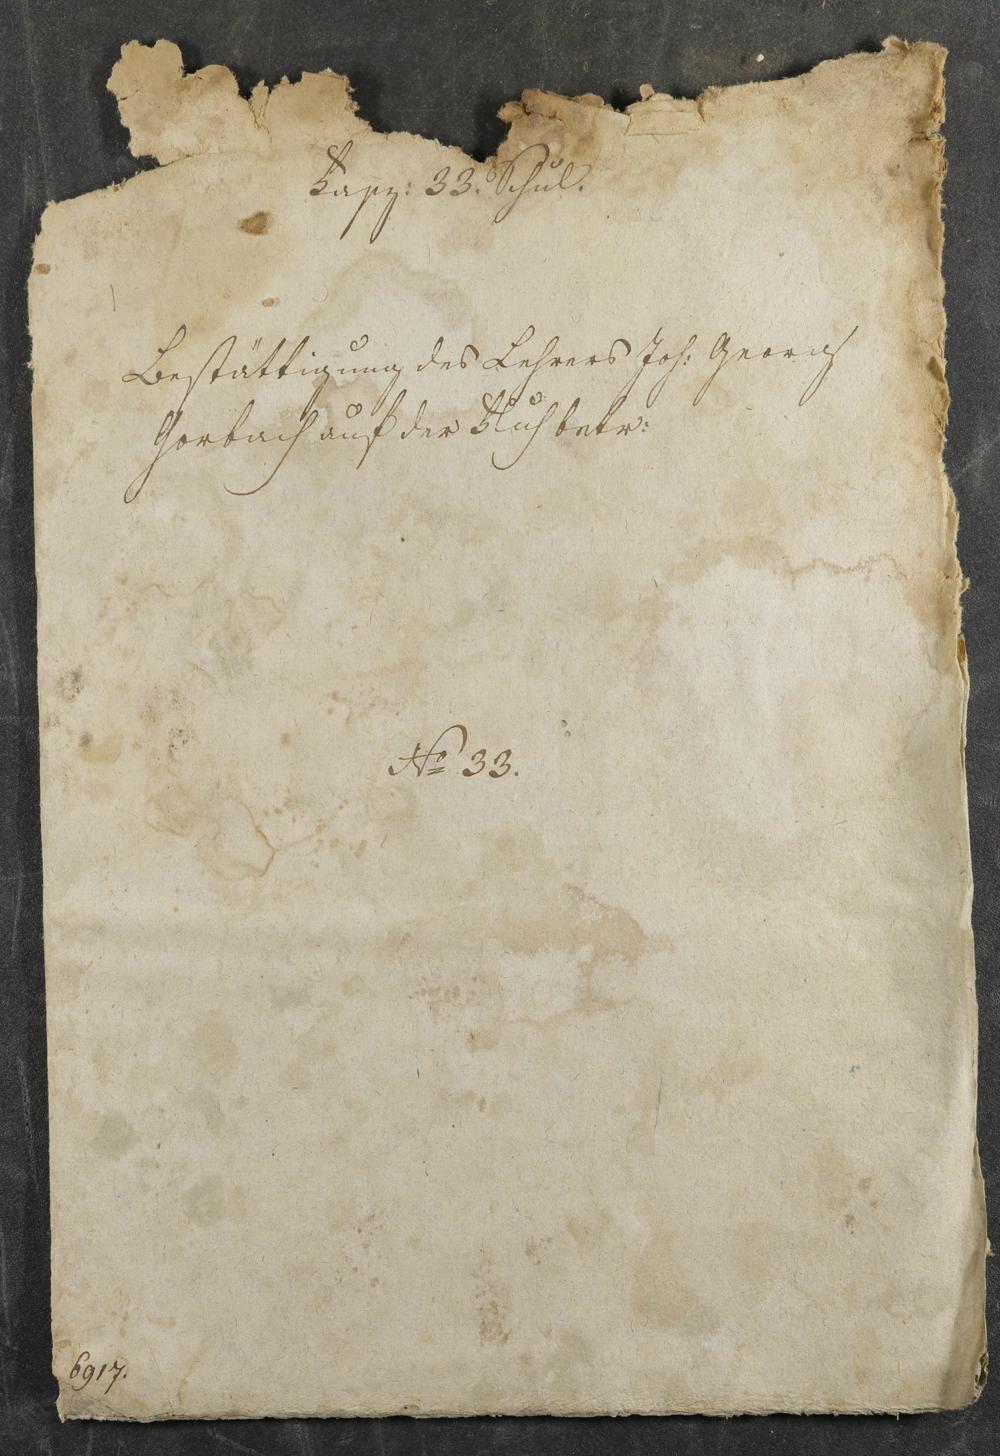 Fasz: 33. Schul.
Bestättigung des Lehrers Joh: Georg
Gorbach auf der Fluh betr:
No 33.
6917.